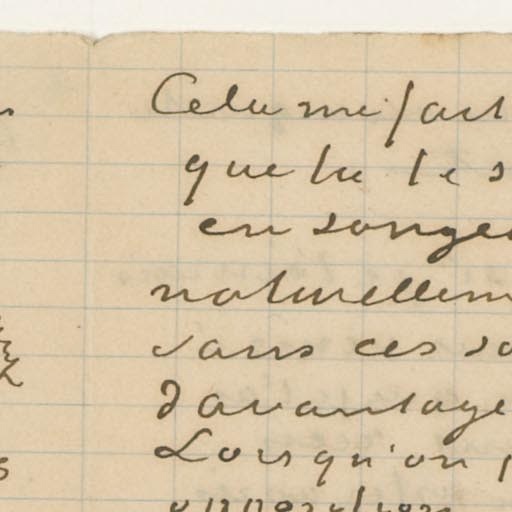 Cela me fait
que tu te s
en songe
naturellem
sans ces so
davantage
Lorsqu'on